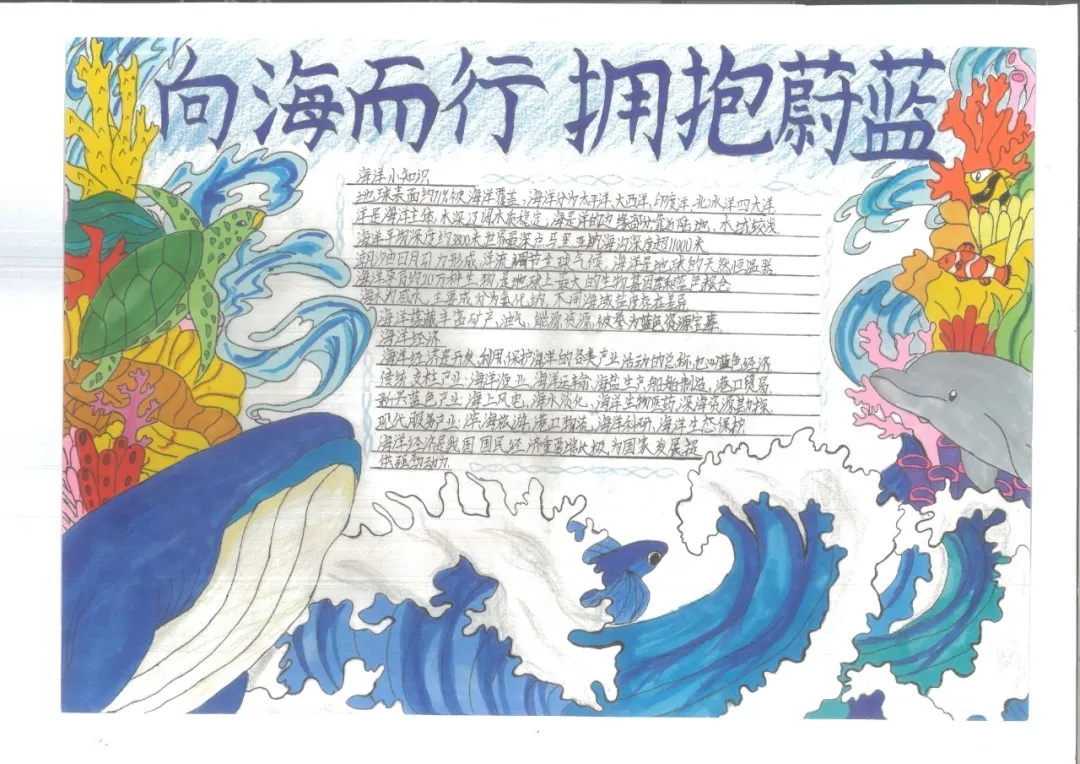 向海而行 拥抱蔚蓝
海洋小知识
地球表面约71%被海洋覆盖,海洋分为太平洋,大西洋,印度洋,北冰洋四大洋
洋是海洋主体,水深辽阔水质稳定,海是洋的边缘部分靠近陆地,水域较浅
海洋平均深度约3800米世界最深点马里亚纳海沟深度超11000米
潮汐由日月引力形成,洋流调节全球气候,海洋是地球的天然恒温器
海洋孕育约20万种生物,是地球上最大的生物基因库和蓝色粮仓
海水为咸水,主要成分为氯化钠,不同海域盐度存在差异
海洋蕴藏丰富矿产,油气,能源资源,被誉为蓝色资源宝库
海洋经济
海洋经济是开发,利用,保护海洋的各类产业活动的总称,也叫蓝色经济
传统支柱产业:海洋渔业,海洋运输,海盐生产,船舶制造,港口贸易
新兴蓝色产业:海上风电,海水淡化,海洋生物医药,深海资源勘探
现代服务产业:滨海旅游,港口物流,海洋科研,海洋生态保护
海洋经济是我国国民经济重要增长极,为国家发展提
供强劲动力